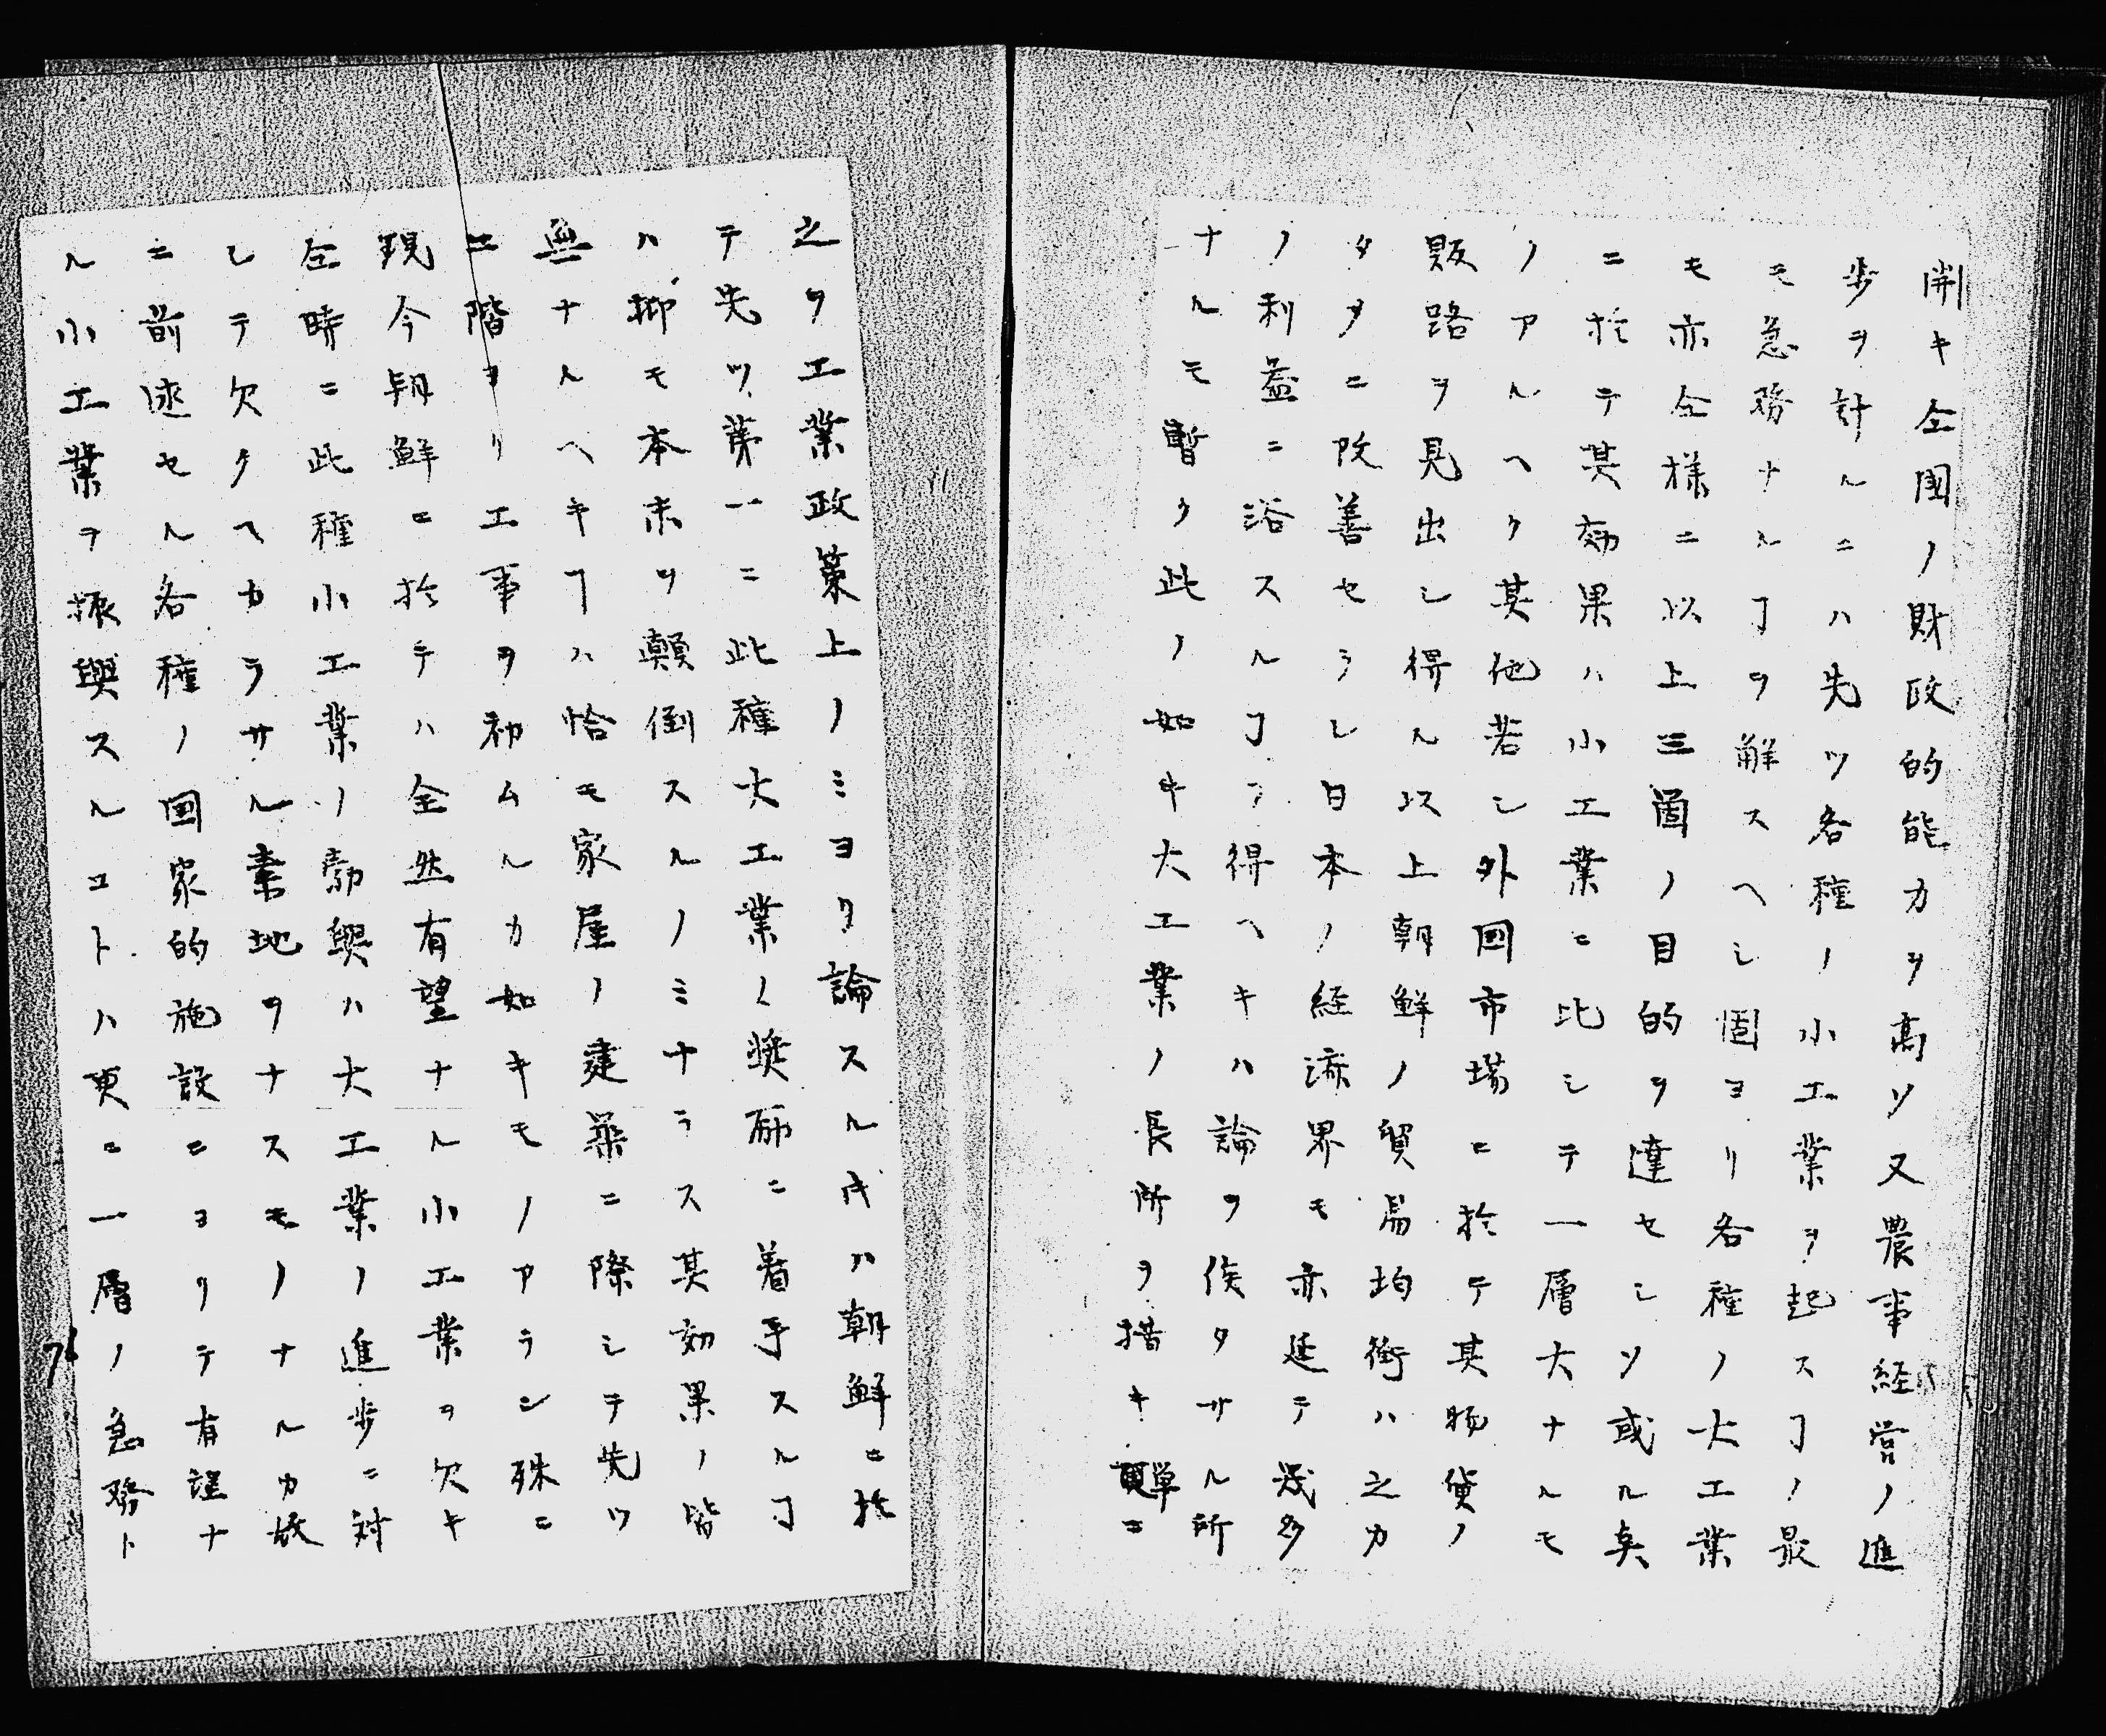 開キ仝國ノ財政的能力ヲ高ソ又農事経営ノ進
歩ヲ計ルニハ先ツ各種ノ小工業ヲ起スヿノ最
モ急務ナルヿヲ解スヘシ固ヨリ各種ノ大工業
モ亦仝様ニ以上三箇ノ目的ヲ達セシソ或ル点
ニ於テ其効果ハ小工業ニ比シテ一層大ナルモ
ノアルヘク其他若シ外国市場ニ於テ其物貨ノ
販路ヲ見出シ得ル以上朝鮮ノ貿易均衡ハ之カ
タメニ改善セラレ日本ノ経済界モ亦延テ幾多
ノ利益ニ浴スルヿヲ得ヘキハ論ヲ俟タサル所
ナルモ暫ク此ノ如キ大工業ノ長所ヲ措キ単ニ
之ヲ工業政策上ノミヨリ論スルキハ朝鮮ニ於
テ先ツ第一ニ此種大工業ノ奨励ニ着手スルヿ
ハ抑モ本末ヲ顛倒スルノミナラス其効果ノ皆
無ナルヘキヿハ恰モ家屋ノ建築ニ際シテ先ツ
二階ヨリ工事ヲ初ムルカ如キモノアラン殊ニ
現今朝鮮ニ於テハ全然有望ナル小工業ヲ欠キ
仝時ニ此種小工業ノ勃興ハ大工業ノ進歩ニ対
シテ欠クヘカラサル素地ヲナスモノナルカ故
ニ前述セル各種ノ国家的施設ニヨリテ有望ナ
ル小工業ヲ振興スルコトハ更ニ一層ノ急務ト